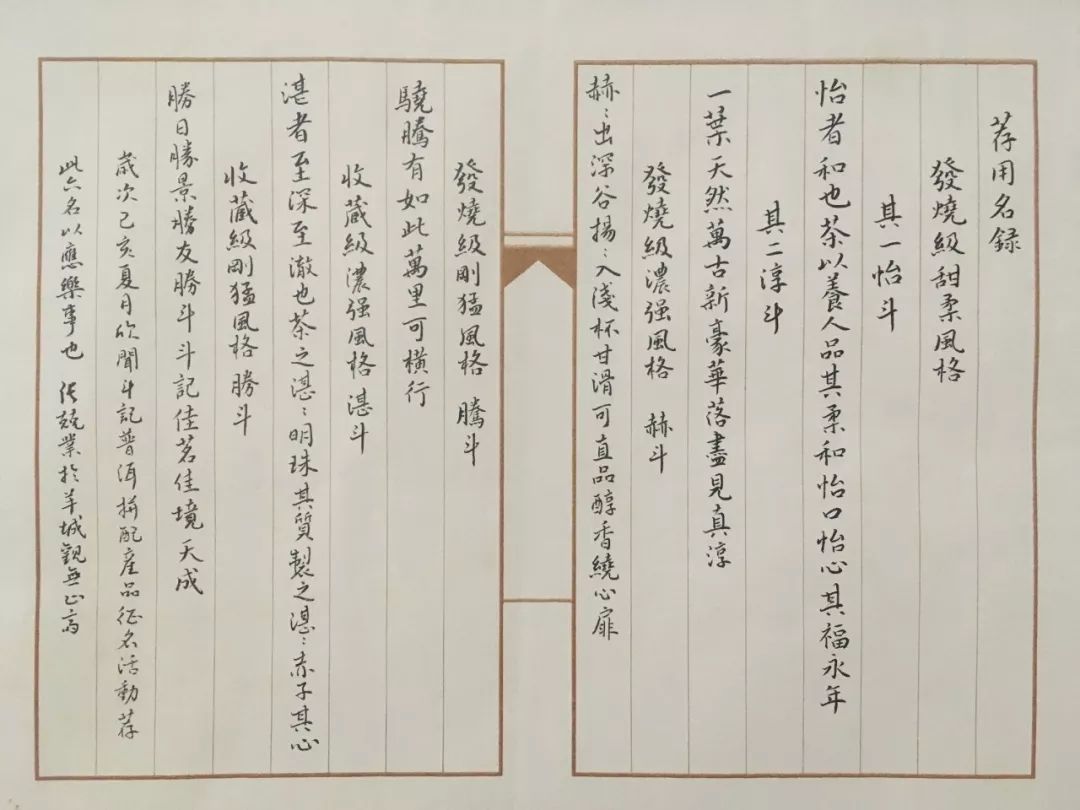 荐用名録
發燒級甜柔風格
其一怡斗
怡者和也茶以養人品其柔和怡口怡心其福永年
其二淳斗
一葉天然萬古新豪華落盡見真淳
發燒級濃强風格 赫斗
赫〻出深谷揚〻入淺杯甘滑可直品醇香繞心扉
發燒級剛猛風格 騰斗
驍騰有如此萬里可橫行
收蔵級濃强風格 湛斗
湛者至深至澈也茶之湛〻明珠其質製之湛〻赤子其心
收蔵級剛猛風格 勝斗
勝日勝景勝友勝斗斗記佳茗佳境天成
歲次己亥夏月欣聞斗記普洱拼配産品征名活動荐
此六名以應樂事也 張兢業於羊城觀無止齋